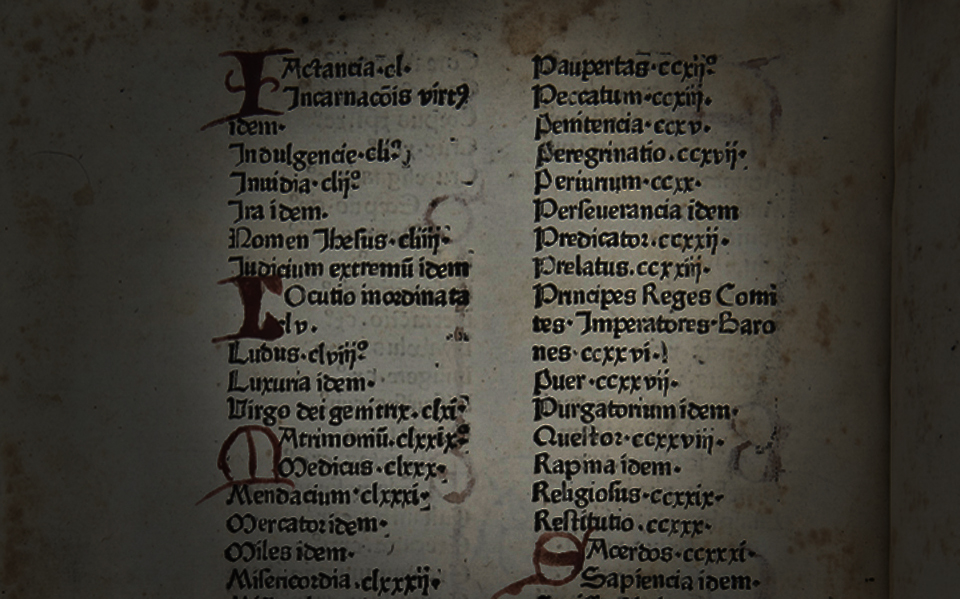 IActancia·cl·
Incarnacõis virtꝰ
idem·
Indulgencie·cli?
Inuidia·clijº
Ira idem.
Nomen Jhesus·cliiij·
Judicium extremũ idem
LOcutio inordinata
clv.
Ludus·clviijº
Luxuria idem·
Virgo dei genitrix.clxiº
MAtrimoniũ.clxxixº
Medicus·clxxx·
Mendacium·clxxxi·
Mercator idem·
Miles idem·
Misericordia.clxxxij·
Paupertas·ccxijº
Peccatum·ccxiij.
Penitencia·ccxv.
Peregrinatio.ccxvij·
Periurium·ccxx·
Perseuerancia idem
Predicator.ccxxij·
Prelatus.ccxxiij·
Principes Reges Comi
tes· Imperatores·Baro
nes·ccxxvi·
Puer·ccxxvij·
Purgatorium idem·
Questor·ccxxviij·
Rapina idem·
Religiosus·ccxxix·
Restitutio.ccxxx·
SAcerdos·ccxxxi·
Sapiencia idem·